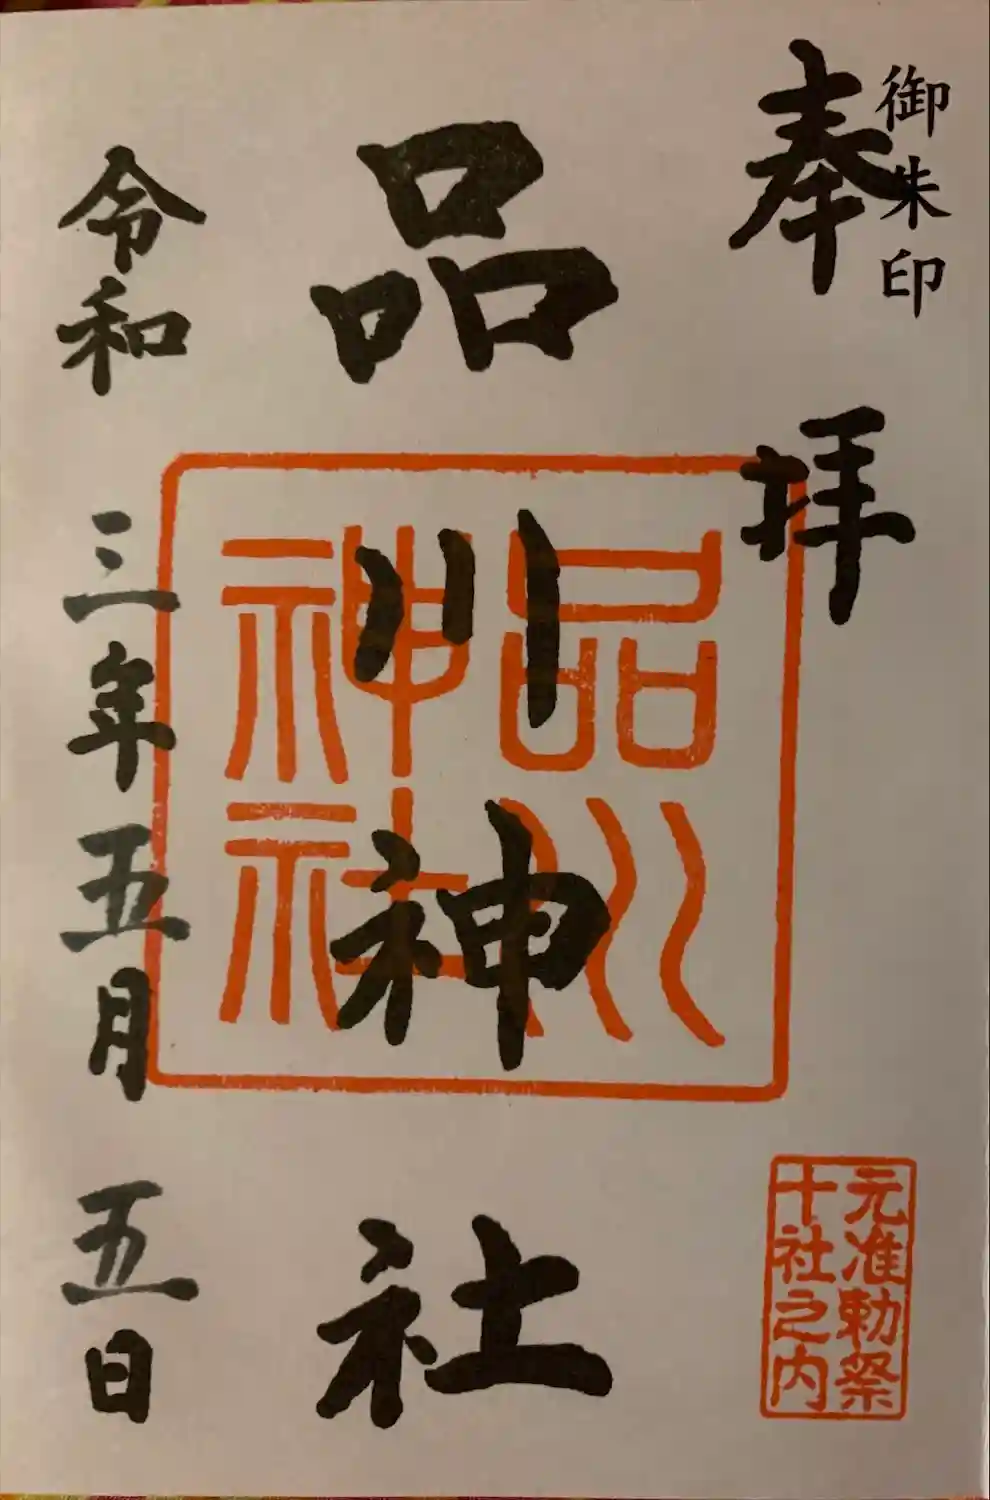 御朱印
奉拝
品川神社
品川
神社
元准勅祭
十社之内
令和三年五月五日